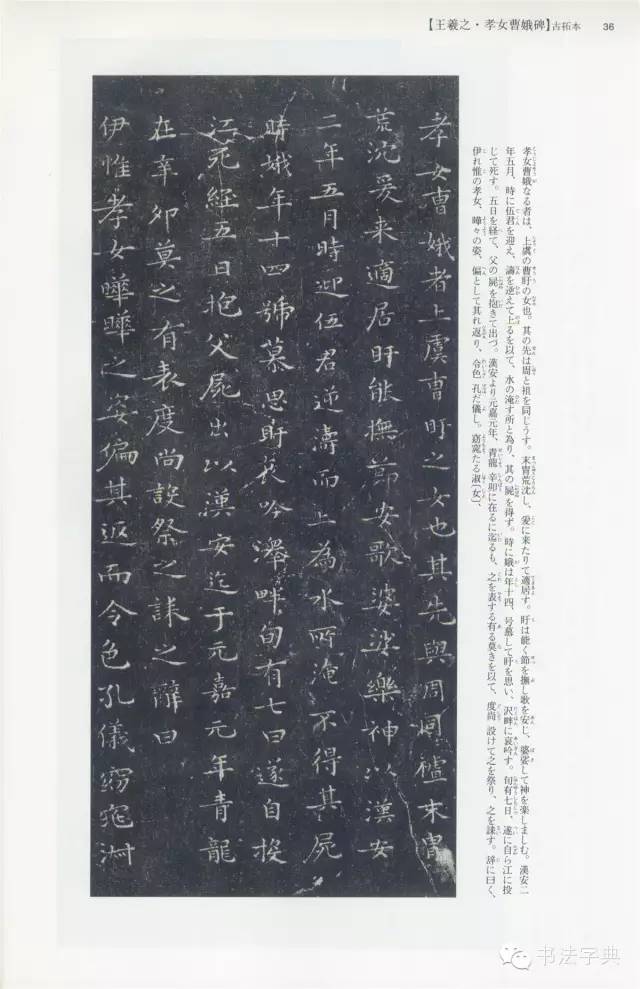 【王羲之・孝女曹娥碑】古拓本 36
孝女曹娥者上虞曹盱之女也其先與周同祖末胄
荒沈爰来適居盱能撫節安歌婆娑樂神以漢安
二年五月時迎伍君逆濤而上為水所淹不得其屍
時娥年十四號慕思盱哀吟澤畔旬有七日遂自投
江死經五日抱父屍出以漢安迄于元嘉元年青龍
在辛卯莫之有表度尚設祭之誄之辭曰
伊惟孝女曄曄之姿偏其返而令色孔儀窈窕淑
孝女曹娥なる者は、上虞の曹盱の女也。其の先は周と祖を同じうす。末冑荒沈し、爰に来たりて適居す。盱は能く節を撫し歌を安じ、婆娑して神を楽しましむ。漢安二
年五月、時に伍君を迎え、濤を逆えて上るを以て、水の淹す所と為り、其の屍を得ず。時に娥は年十四、号慕して盱を思い、沢畔に哀吟す。旬有七日、遂に自ら江に投
じて死す。五日を経て、父の屍を抱きて出づ。漢安より元嘉元年、青龍 辛卯に在るに迄るも、之を表する有る莫きを以て、度尚 設けて之を祭り、之を誄す。辞に曰く、
伊れ惟の孝女、曄々の姿、偏として其れ返り、令色 孔だ儀し。窈窕たる淑〔女〕、
书法字典